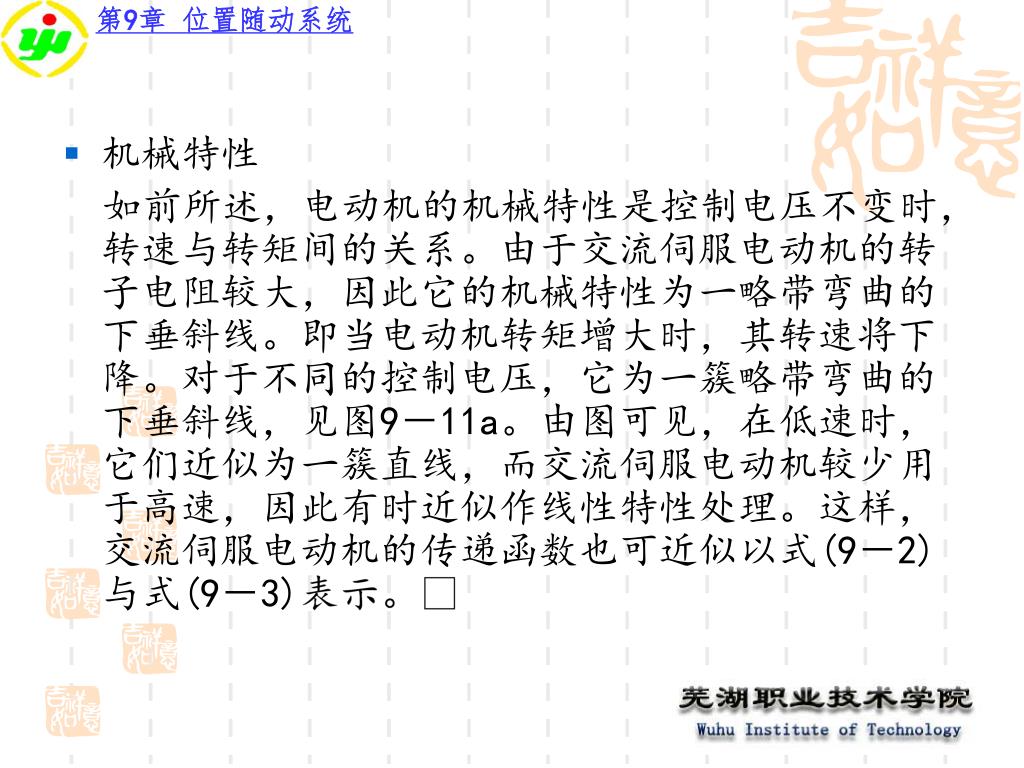 第9章 位置随动系统
吉祥
如意
机械特性
如前所述，电动机的机械特性是控制电压不变时，
转速与转矩间的关系。由于交流伺服电动机的转
子电阻较大，因此它的机械特性为一略带弯曲的
下垂斜线。即当电动机转矩增大时，其转速将下
降。对于不同的控制电压，它为一簇略带弯曲的
下垂斜线，见图9－11a。由图可见，在低速时，
它们近似为一簇直线，而交流伺服电动机较少用
于高速，因此有时近似作线性特性处理。这样，
交流伺服电动机的传递函数也可近似以式(9－2)
与式(9－3)表示。□
吉祥
如意
吉祥
如意
吉祥
如意
吉祥
如意
吉祥
如意
吉祥
如意
芜湖职业技术学院
Wuhu Institute of Technology